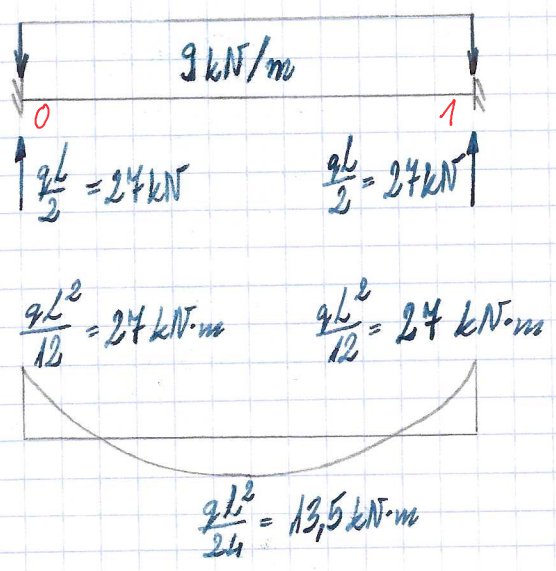 9 kN/m
0 1
qL/2 = 27 kN qL/2 = 27 kN
qL²/12 = 27 kN·m qL²/12 = 27 kN·m
qL²/24 = 13,5 kN·m